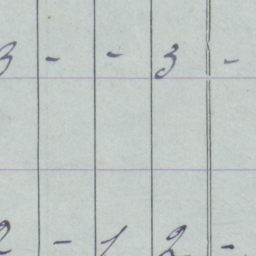 3 - - 3 -
2 - 1 2 -